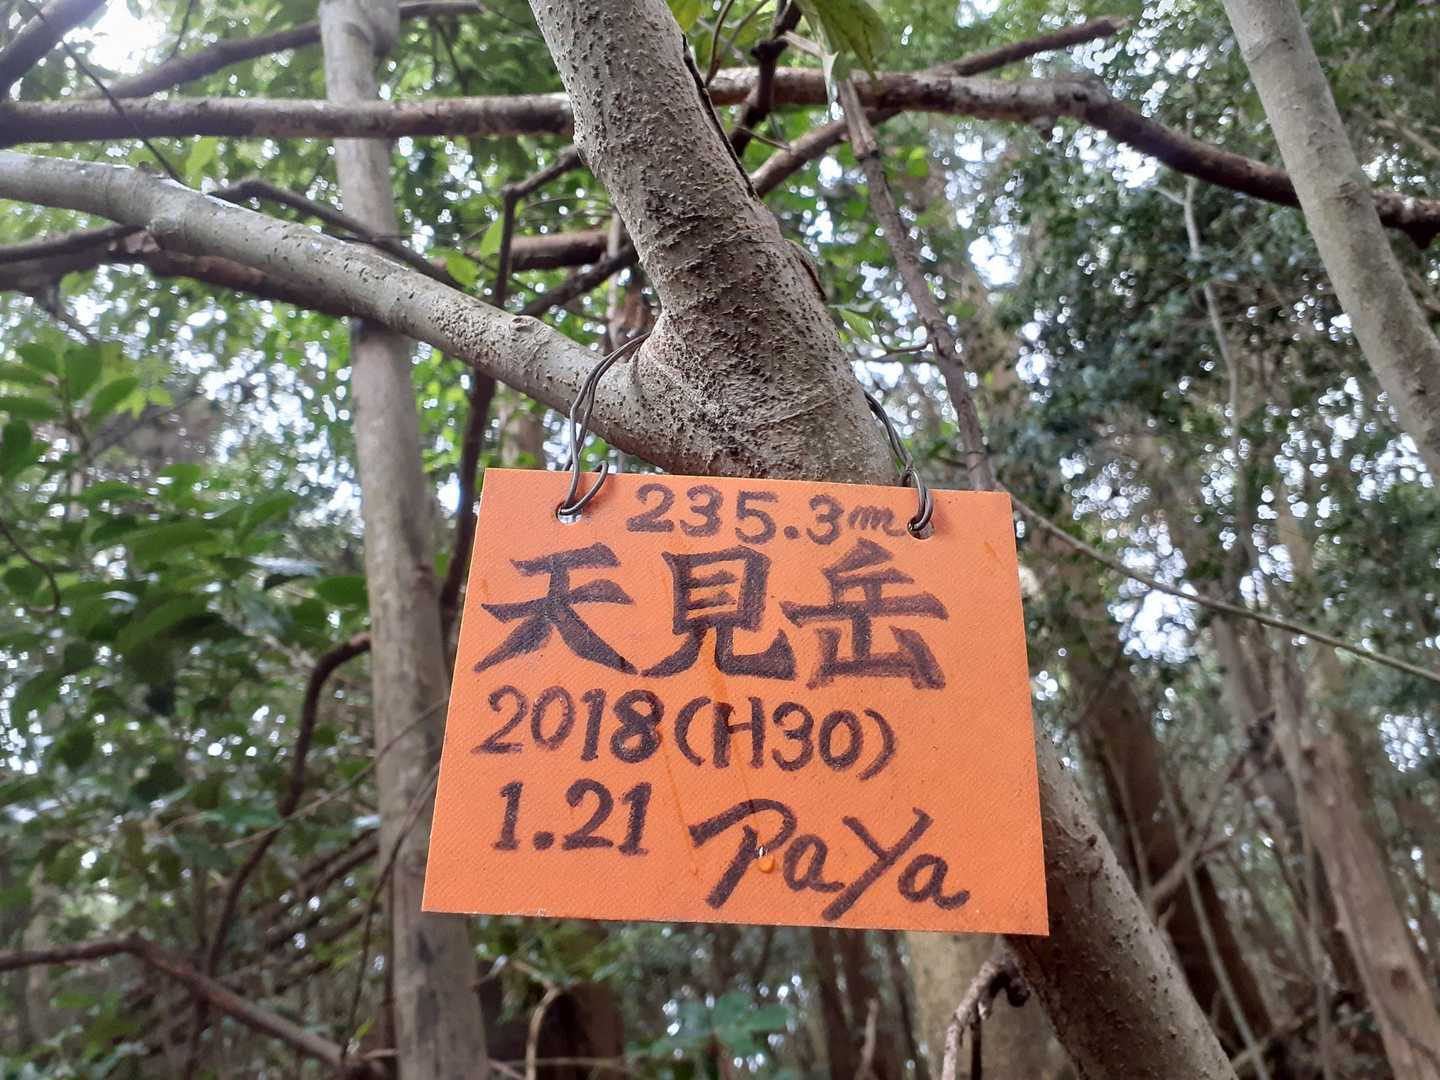 235.3m
天見岳
2018(H30)
1.21 PaYa